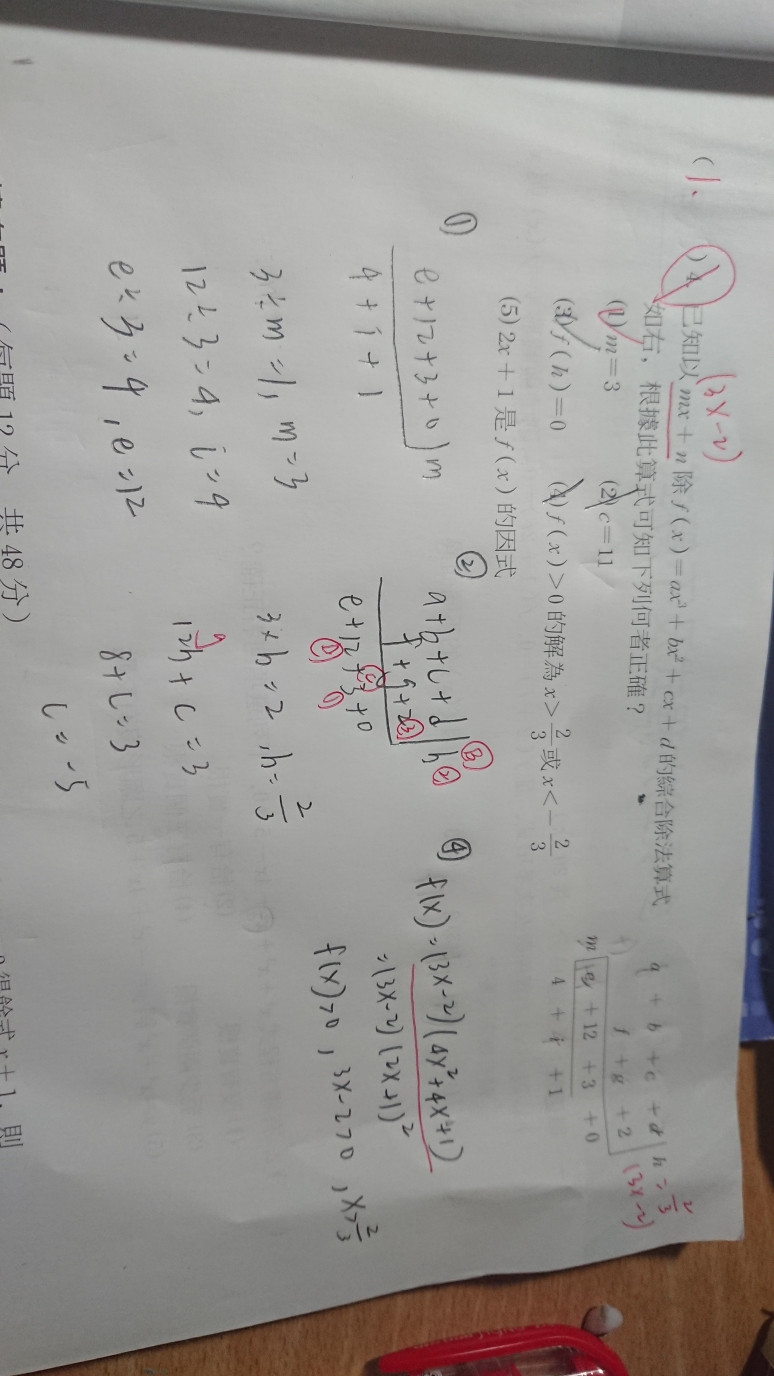 (1、 ) 4. 已知以 mx + n 除 f(x) = ax³ + bx² + cx + d 的綜合除法算式
(3x-2)
如右，根據此算式可知下列何者正確？
(1) m = 3 (2) c = 11
(3) f(h) = 0 (4) f(x) > 0 的解為 x > 2/3 或 x < -2/3
(5) 2x + 1 是 f(x) 的因式
a + b + c + d | h = 2/3
f + g + 2 (3x-2)
m | e + 12 + 3 + 0
4 + i + 1
①
e + 12 + 3 + 0 | m
4 + i + 1
3 ÷ m = 1, m = 3
12 ÷ 3 = 4, i = 4
e ÷ 3 = 4, e = 12
②
a + b + c + d | h
f + g + 2
e + 12 + 3 + 0
3 × h = 2, h = 2/3
12h + c = 3
8 + c = 3
c = -5
④
f(x) = (3x-2)(4x²+4x+1)
= (3x-2)(2x+1)²
f(x)>0, 3x-2>0, x>2/3
（每題12分 共48分）
得餘式 x + 1，則